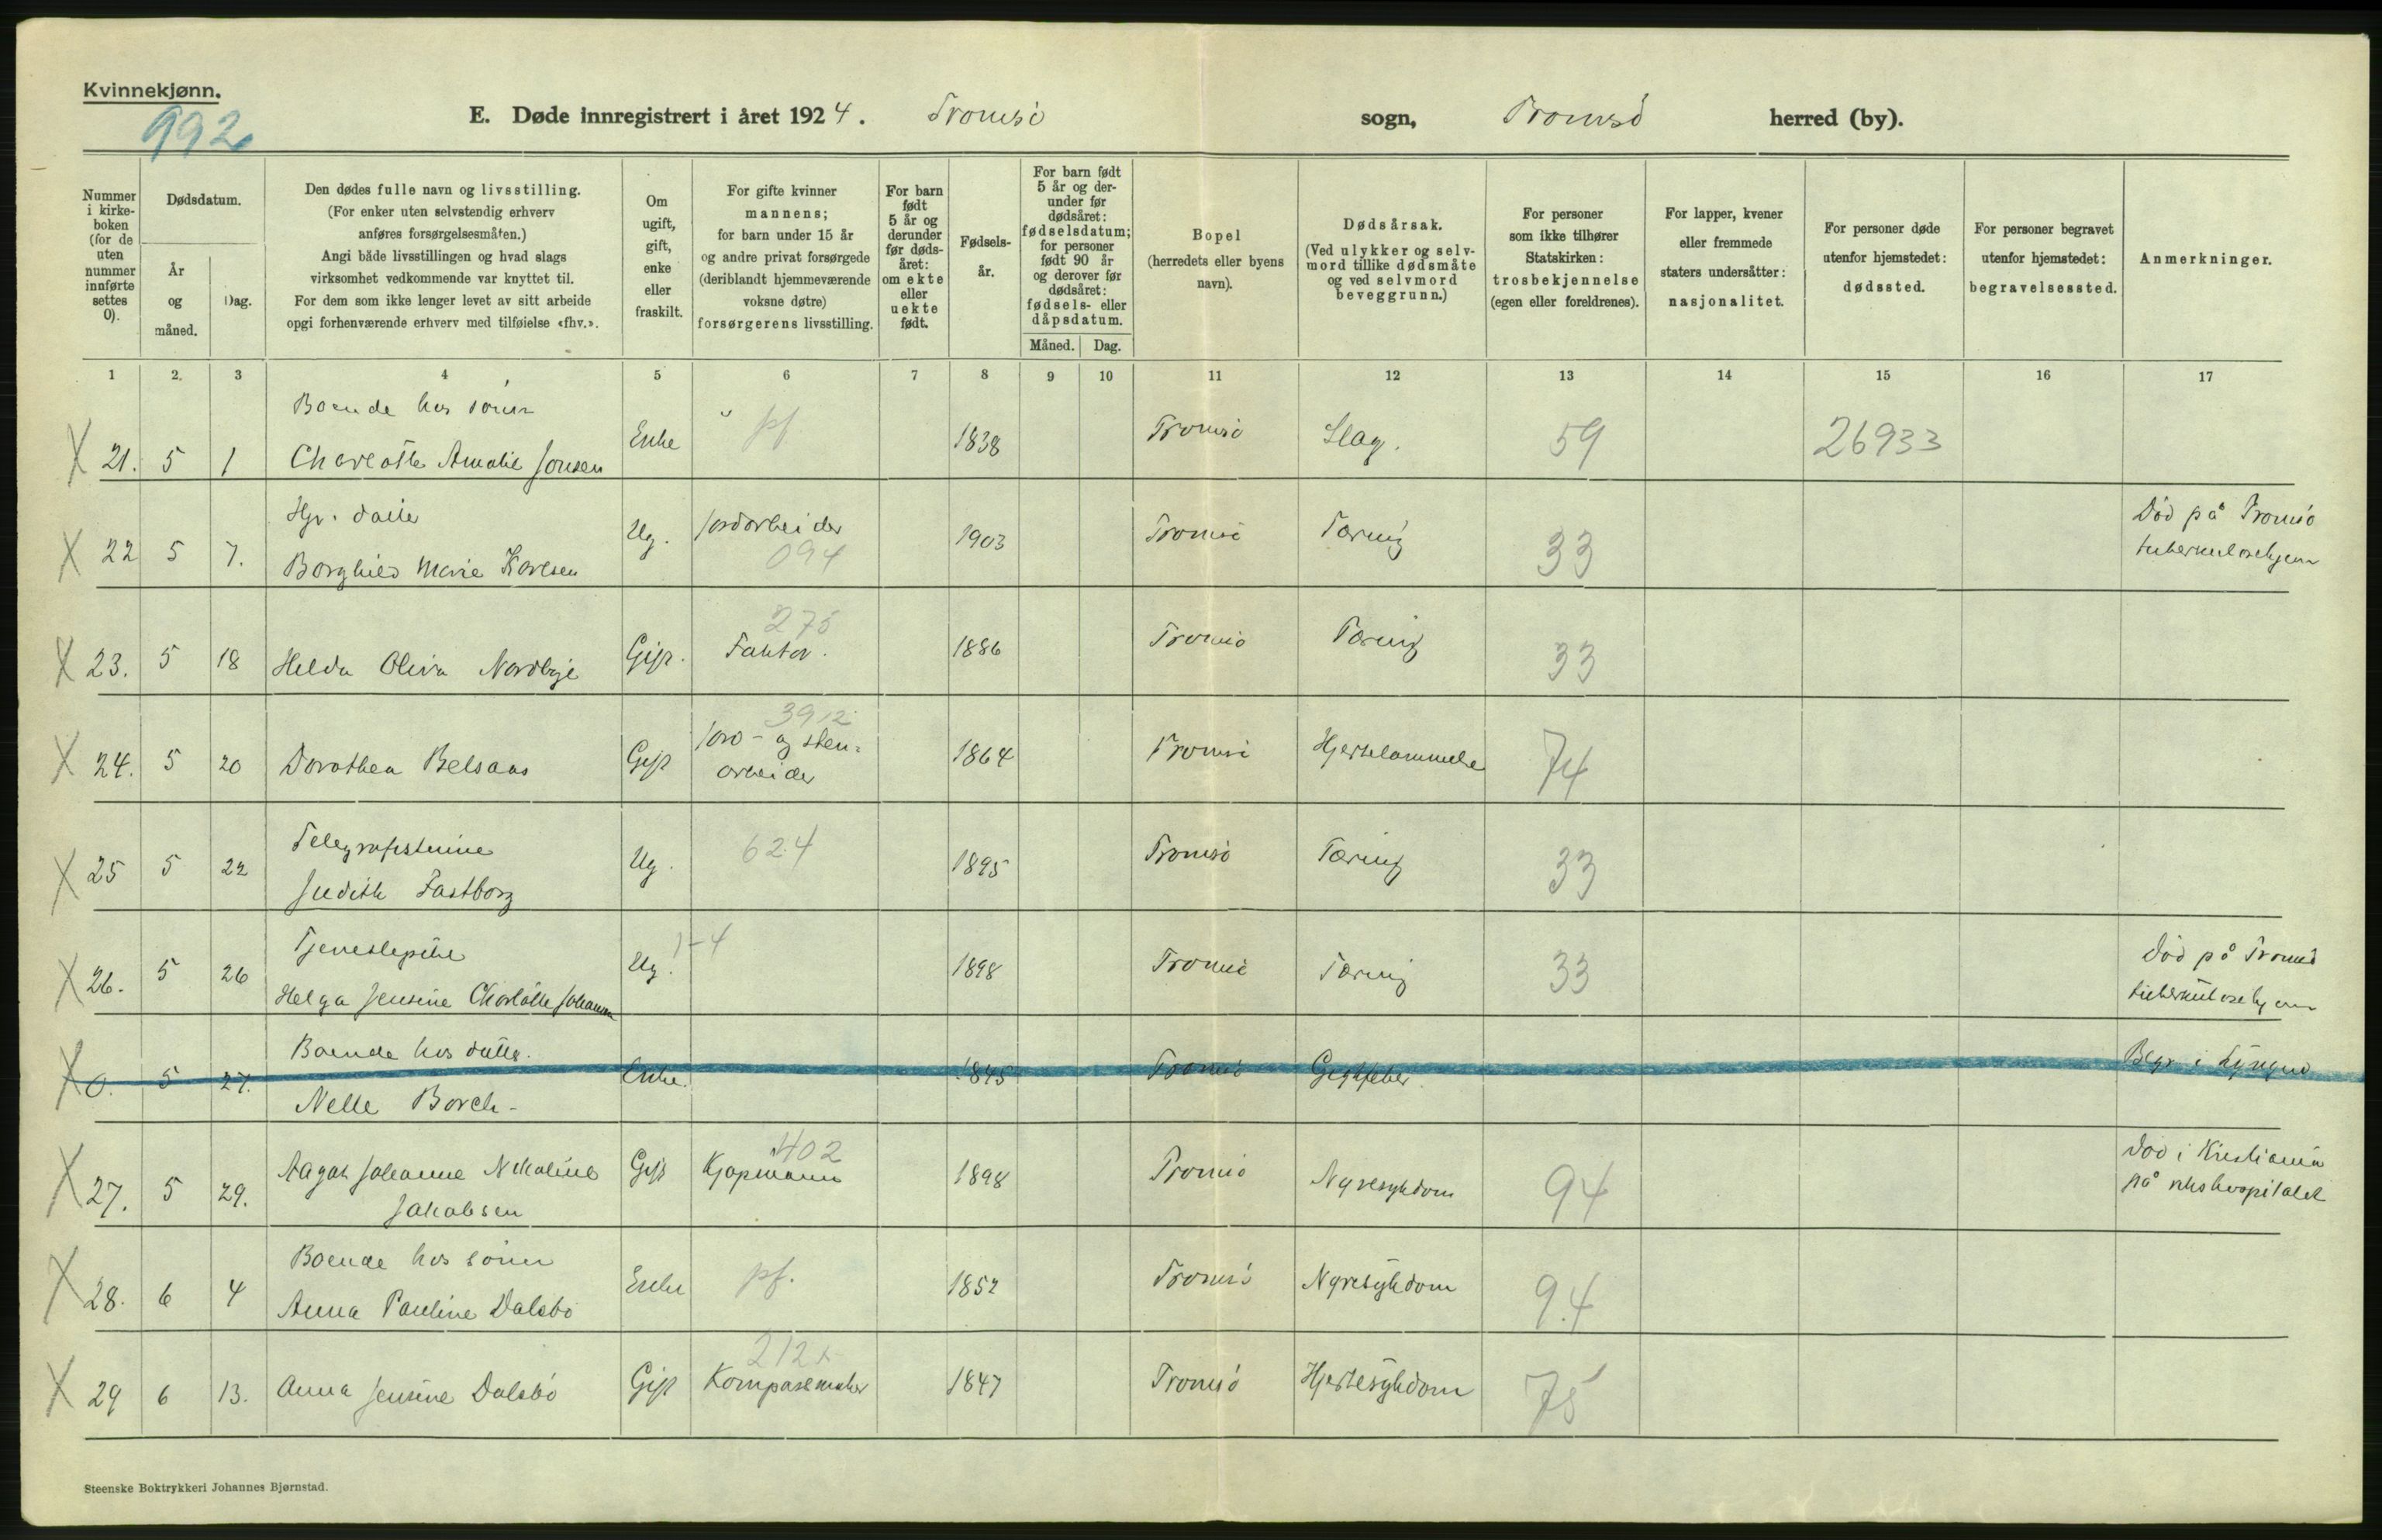 Kvinnekjønn.
992
E. Døde innregistrert i året 1924. Tromsö sogn, Tromsö herred (by).
Nummer i kirke-boken (for de uten nummer innførte settes 0).
Dødsdatum.
År og måned.
Dag.
Den dødes fulle navn og livsstilling.
(For enker uten selvstendig erhverv
anføres forsørgelsesmåten.)
Angi både livsstillingen og hvad slags
virksomhet vedkommende var knyttet til.
For dem som ikke lenger levet av sitt arbeide
opgi forhenværende erhverv med tilføielse «fhv.».
Om ugift, gift, enke eller fraskilt.
For gifte kvinner
mannens;
for barn under 15 år
og andre privat forsørgede
(deriblandt hjemmeværende
voksne døtre)
forsørgerens livsstilling.
For barn født 5 år og derunder før døds-året: om ekte eller uekte født.
Fødsels-år.
For barn født 5 år og der-under før dødsåret: fødselsdatum; for personer født 90 år og derover før dødsåret: fødsels- eller dåpsdatum.
Måned. Dag.
Bopel
(herredets eller byens
navn).
Dødsårsak.
(Ved ulykker og selv-
mord tillike dødsmåte
og ved selvmord
beveggrunn.)
For personer
som ikke tilhører
Statskirken:
trosbekjennelse
(egen eller foreldrenes).
For lapper, kvener
eller fremmede
staters undersåtter:
nasjonalitet.
For personer døde
utenfor hjemstedet:
dødssted.
For personer begravet
utenfor hjemstedet:
begravelsessted.
Anmerkninger.
1 2. 3 4 5 6 7 8 9 10 11 12 13 14 15 16 17
Boende hos sönn
X 21. 5 1 Charlotte Amalie Jonsen Enke pf. 1838 Tromsö Slag. 59 26933
Hjv. datter
X 22 5 7. Borghild Marie Karlsen Ug. Jordarbeider 094 1903 Tromsö Tæring 33 Död på Tromsö
tuberkulosehjem
275
X 23. 5 18 Helda Oliva Nordbye Gift. Faktor. 1886 Tromsö Tæring 33
3912
X 24. 5 20 Dorothea Belsaas Gift Jord- og sten-
arbeider 1864 Tromsö Hjertelammelse 74
Telegrafistinne
X 25 5 22 Judith Fastborg Ug. 624 1895 Tromsö Tæring 33
Tjenestepike
X 26. 5 26 Helga Jensine Charlotte Johansen Ug. 1-4 1898 Tromsö Tæring 33 Död på Tromsö
tuberkulosehjem
Boende hos datter.
X 0. 5 27. Nelle Borch- Enke. 1845 Tromsö Gigtfeber. Begr i Lyngen
402
X 27. 5 29. Aagot Johanne Nikoline
Jakobsen Gift Kjøpmann 1898 Tromsö Nyresykdom 94 Död i Kristiania
på rikshospitalet
Boende hos sönn
X 28. 6 4 Anna Pauline Dalsbö Enke pf. 1852 Tromsö Nyresykdom 94
212
X 29 6 13. Anna Jensine Dalsbö Gift Kompasmaker 1847 Tromsö Hjertesykdom 75
Steenske Boktrykkeri Johannes Bjørnstad.